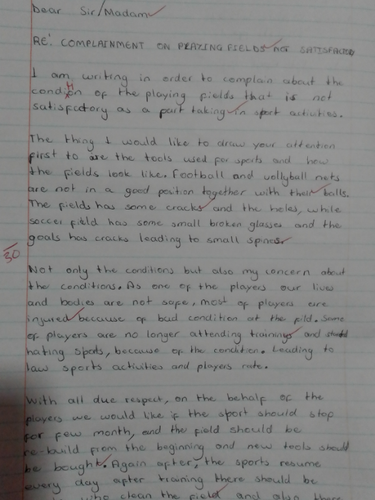 Dear Sir/Madam
RE: COMPLAINMENT ON PLAYING FIELDS NOT SATISFACTO
I am writing in order to complain about the
condition of the playing fields that is not
satisfactory as a part taking in sport activities.
The thing I would like to draw your attention
first to are the tools used for sports and how
the fields look like. Football and vollyball nets
are not in a good position together with their balls.
The fields has some cracks and the holes, while
soccer field has some small broken glasses and the
goals has cracks leading to small spines.
30
Not only the conditions but also my concern about
the conditions. As one of the players our lives
and bodies are not safe, most of players are
injured because of bad condition at the fild. Some
of players are no longer attending trainings and
hating sports, because of the condition. Leading to
law sports activities and players rate.
With all due respect, on the behalf of the
players we would like if the sport should stop
for few month, and the field should be
re-build from the beginning and new tools should
be bought. Again after, the sports resume
every day after training there should be
who clean the field and also there